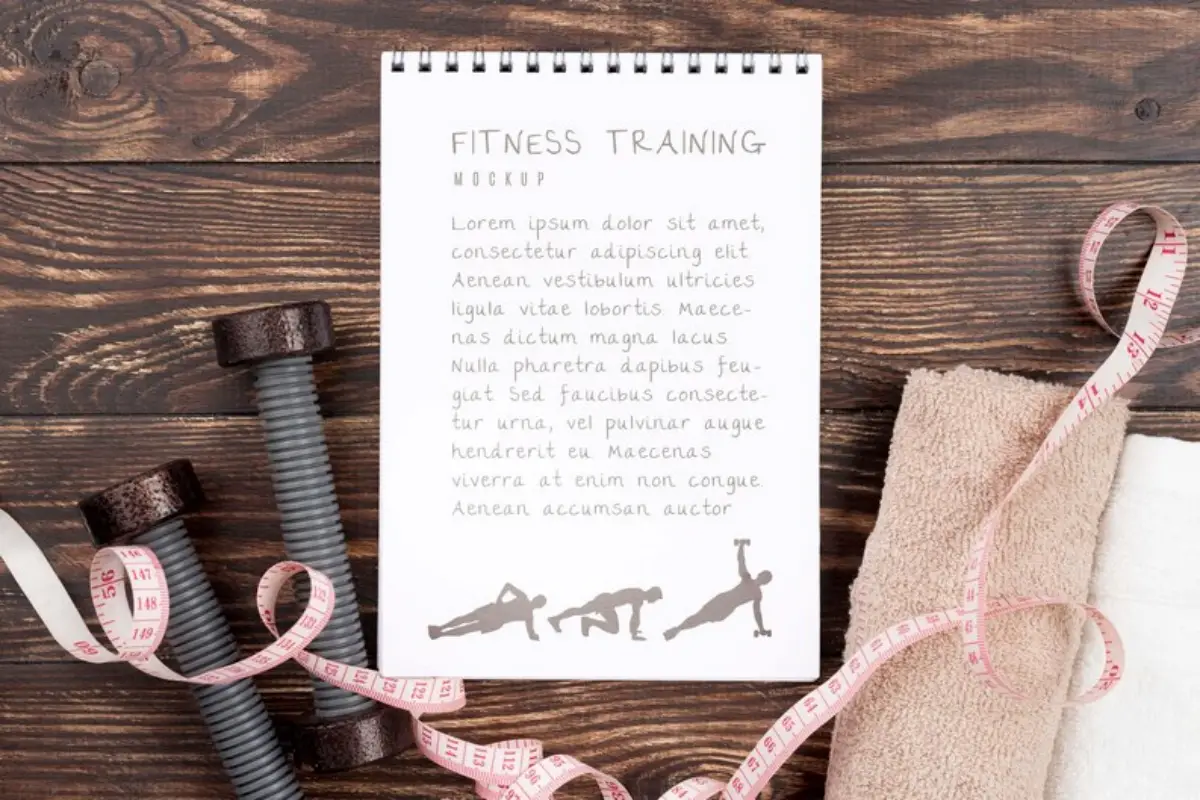 FITNESS TRAINING
MOCKUP
Lorem ipsum dolor sit amet,
consectetur adipiscing elit
Aenean vestibulum ultricies
ligula vitae lobortis Maece-
nas dictum magna lacus
Nulla pharetra dapibus feu-
giat Sed faucibus consecte-
tur urna, vel pulvinar augue
hendrerit eu Maecenas
viverra at enim non congue.
Aenean accumsan auctor
11
12
13
14
146
147
148
149
56
60
124
123
122
121
114
113
112
64
65
66
67